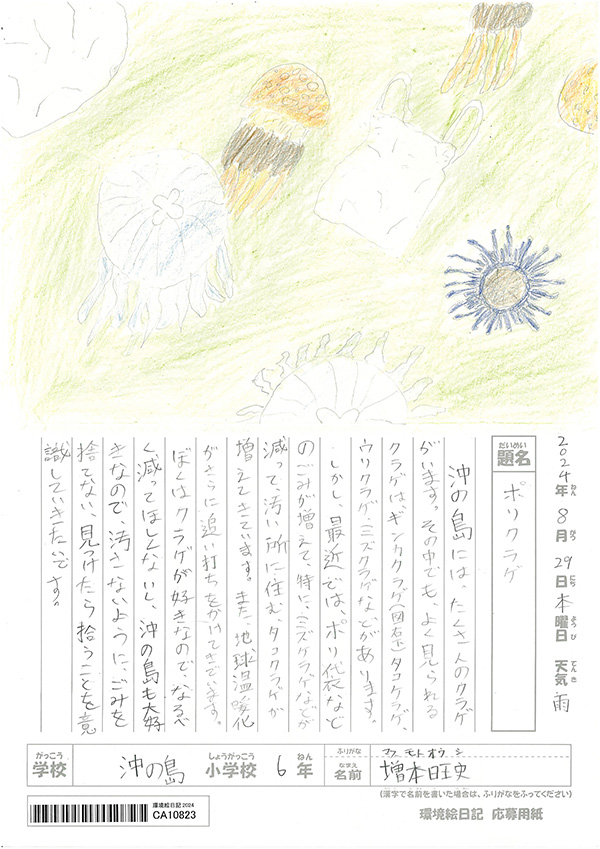 2024年8月29日木曜日 天気 雨
ねん がつ にち ようび てんき
だいめい
題名 ポリクラゲ
沖の島には、たくさんのクラゲ
がいます。その中でも、よく見られる
クラゲは、ギンカクラゲ(図右)タコクラゲ、
ウリクラゲ、ミズクラゲなどがあります。
しかし、最近では、ポリ袋など
のごみが増えて、特に、ミズクラゲなどが
減って、汚い所に住む、タコクラゲが
増えてきています。また、地球温暖化
がさらに追い打ちをかけてきています。
ぼくはクラゲが好きなので、なるべ
く減ってほしくないし、沖の島も大好
きなので、汚さないように、ごみを
捨てない、見つけたら拾うことを意
識していきたいです。
がっこう しょうがっこう ねん ふりがな マスモトオウシ
学校 沖の島 小学校 6年 なまえ 名前 増本旺史
(漢字で名前を書いた場合は、ふりがなをふってください)
環境絵日記2024
CA10823
環境絵日記 応募用紙